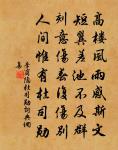 高樓風雨感斯文
短翼差池不及群
刻意傷春復傷別
人間惟有杜司勳
李商隱杜司勳